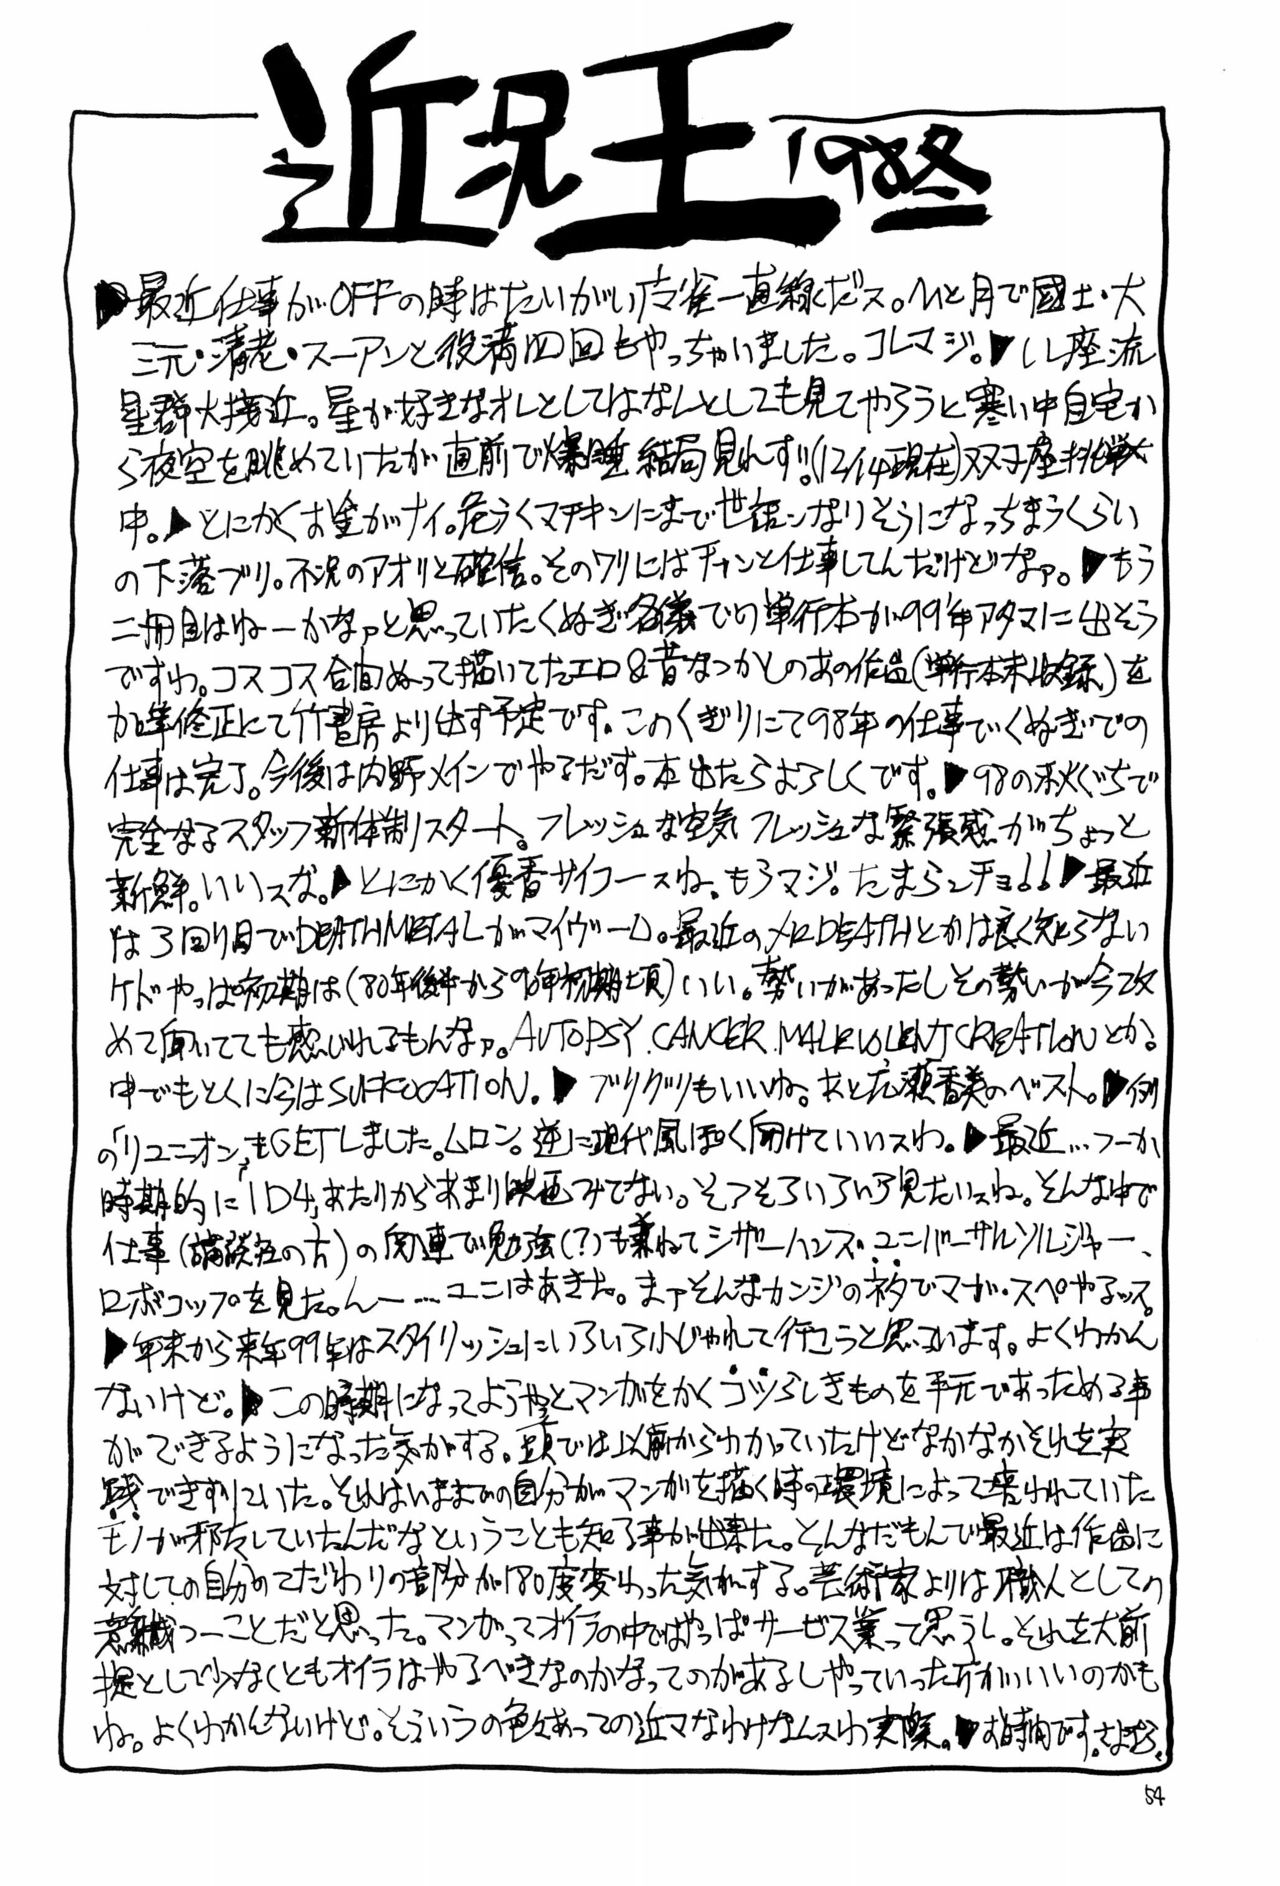 近況王 '98冬
▶最近仕事がOFFの時はたいがい麻雀一直線だス。ひと月で國士・大
三元・清老・スーアンと役満四回もやっちゃいました。コレマジ。▶しし座流
星群大接近。星が好きなオレとしてはなんとしても見てやろうと寒い中自宅か
ら夜空を眺めていたが直前で爆睡 結局見れず!!(12/14現在)双子座挑戦
中。▶とにかくお金がナイ。危うくマチキンにまで世話ンなりそうになっちまうくらい
の下落ブリ。不況のアオリと確信。そのワリにはチャンと仕事してんだけどなァ。▶もう
二冊目はねーかなァと思っていたくぬぎ名義での単行本が99年アタマに出そう
ですわ。コスコス合間ぬって描いてたエロ&昔なつかしのあの作品(単行本未収録)を
加筆修正にて竹書房より出す予定です。このくぎりにて98年の仕事でくぬぎでの
仕事は完了。今後は内野メインでやるだす。本出たらよろしくです。▶98の秋ぐちで
完全なるスタッフ新体制スタート。フレッシュな空気 フレッシュな緊張感がちょっと
新鮮。いいスな。▶とにかく優香サイコースね、もうマジ。たまらンチョ!!▶最近
は3回り目でDEATHMETALがマイヴーム。最近のメロDEATHとかは良く知らない
ケドやっぱ初期は(80年後半から90年初期頃)いい。勢いがあったしその勢いが今改
めて聞いてても感じれるもんなァ。AUTOPSY.CANCER.MALEVOLENTCREATIONとか。
中でもとくに今はSUFFOCATION.▶ブリグリもいいね。あと広瀬香美のベスト。▶例
の「リユニオン」もGETしました。ムロン。逆に現代風ぽく聞けていいスわ。▶最近…つーか
時期的に「ID4」あたりからあまり映画みてない。そうそういろいろ見たいスね。そんな中で
仕事(講談社の方)の関連で勉強(?)も兼ねてシザーハンズ・ユニバーサルソルジャー、
ロボコップを見た。んー……ユニはあきた。まァそんなカンジのネタでマガ・スペやるッス。
▶年末から来年99年はスタイリッシュにいろいろ小じゃれて行こうと思っています。よくわかん
ないけど。▶この時期になってようやっとマンガをかくコツらしきものを手元であっためる事
ができるようになった気がする。頭では以前からわかっていたけどなかなかそれを実
践できずにいた。それはいままでの自分がマンガを描く時の環境によって培われていた
モノが邪魔していたんだなということも知る事が出来た。そんなだもんで最近は作品に
対しての自分のこだわりの部分が180度変わった気がする。芸術家よりは職人としての
意識つーことだと思った。マンガってオイラの中ではやっぱサービス業って思うし。それを大前
提として少なくともオイラはやるべきなのかなってのがあるしやっていった方がいいのかも
ね。よくわかんないけど。そういうの色々あっての近マなわけなんスわ実際。▶お時間です。さよなら。
54